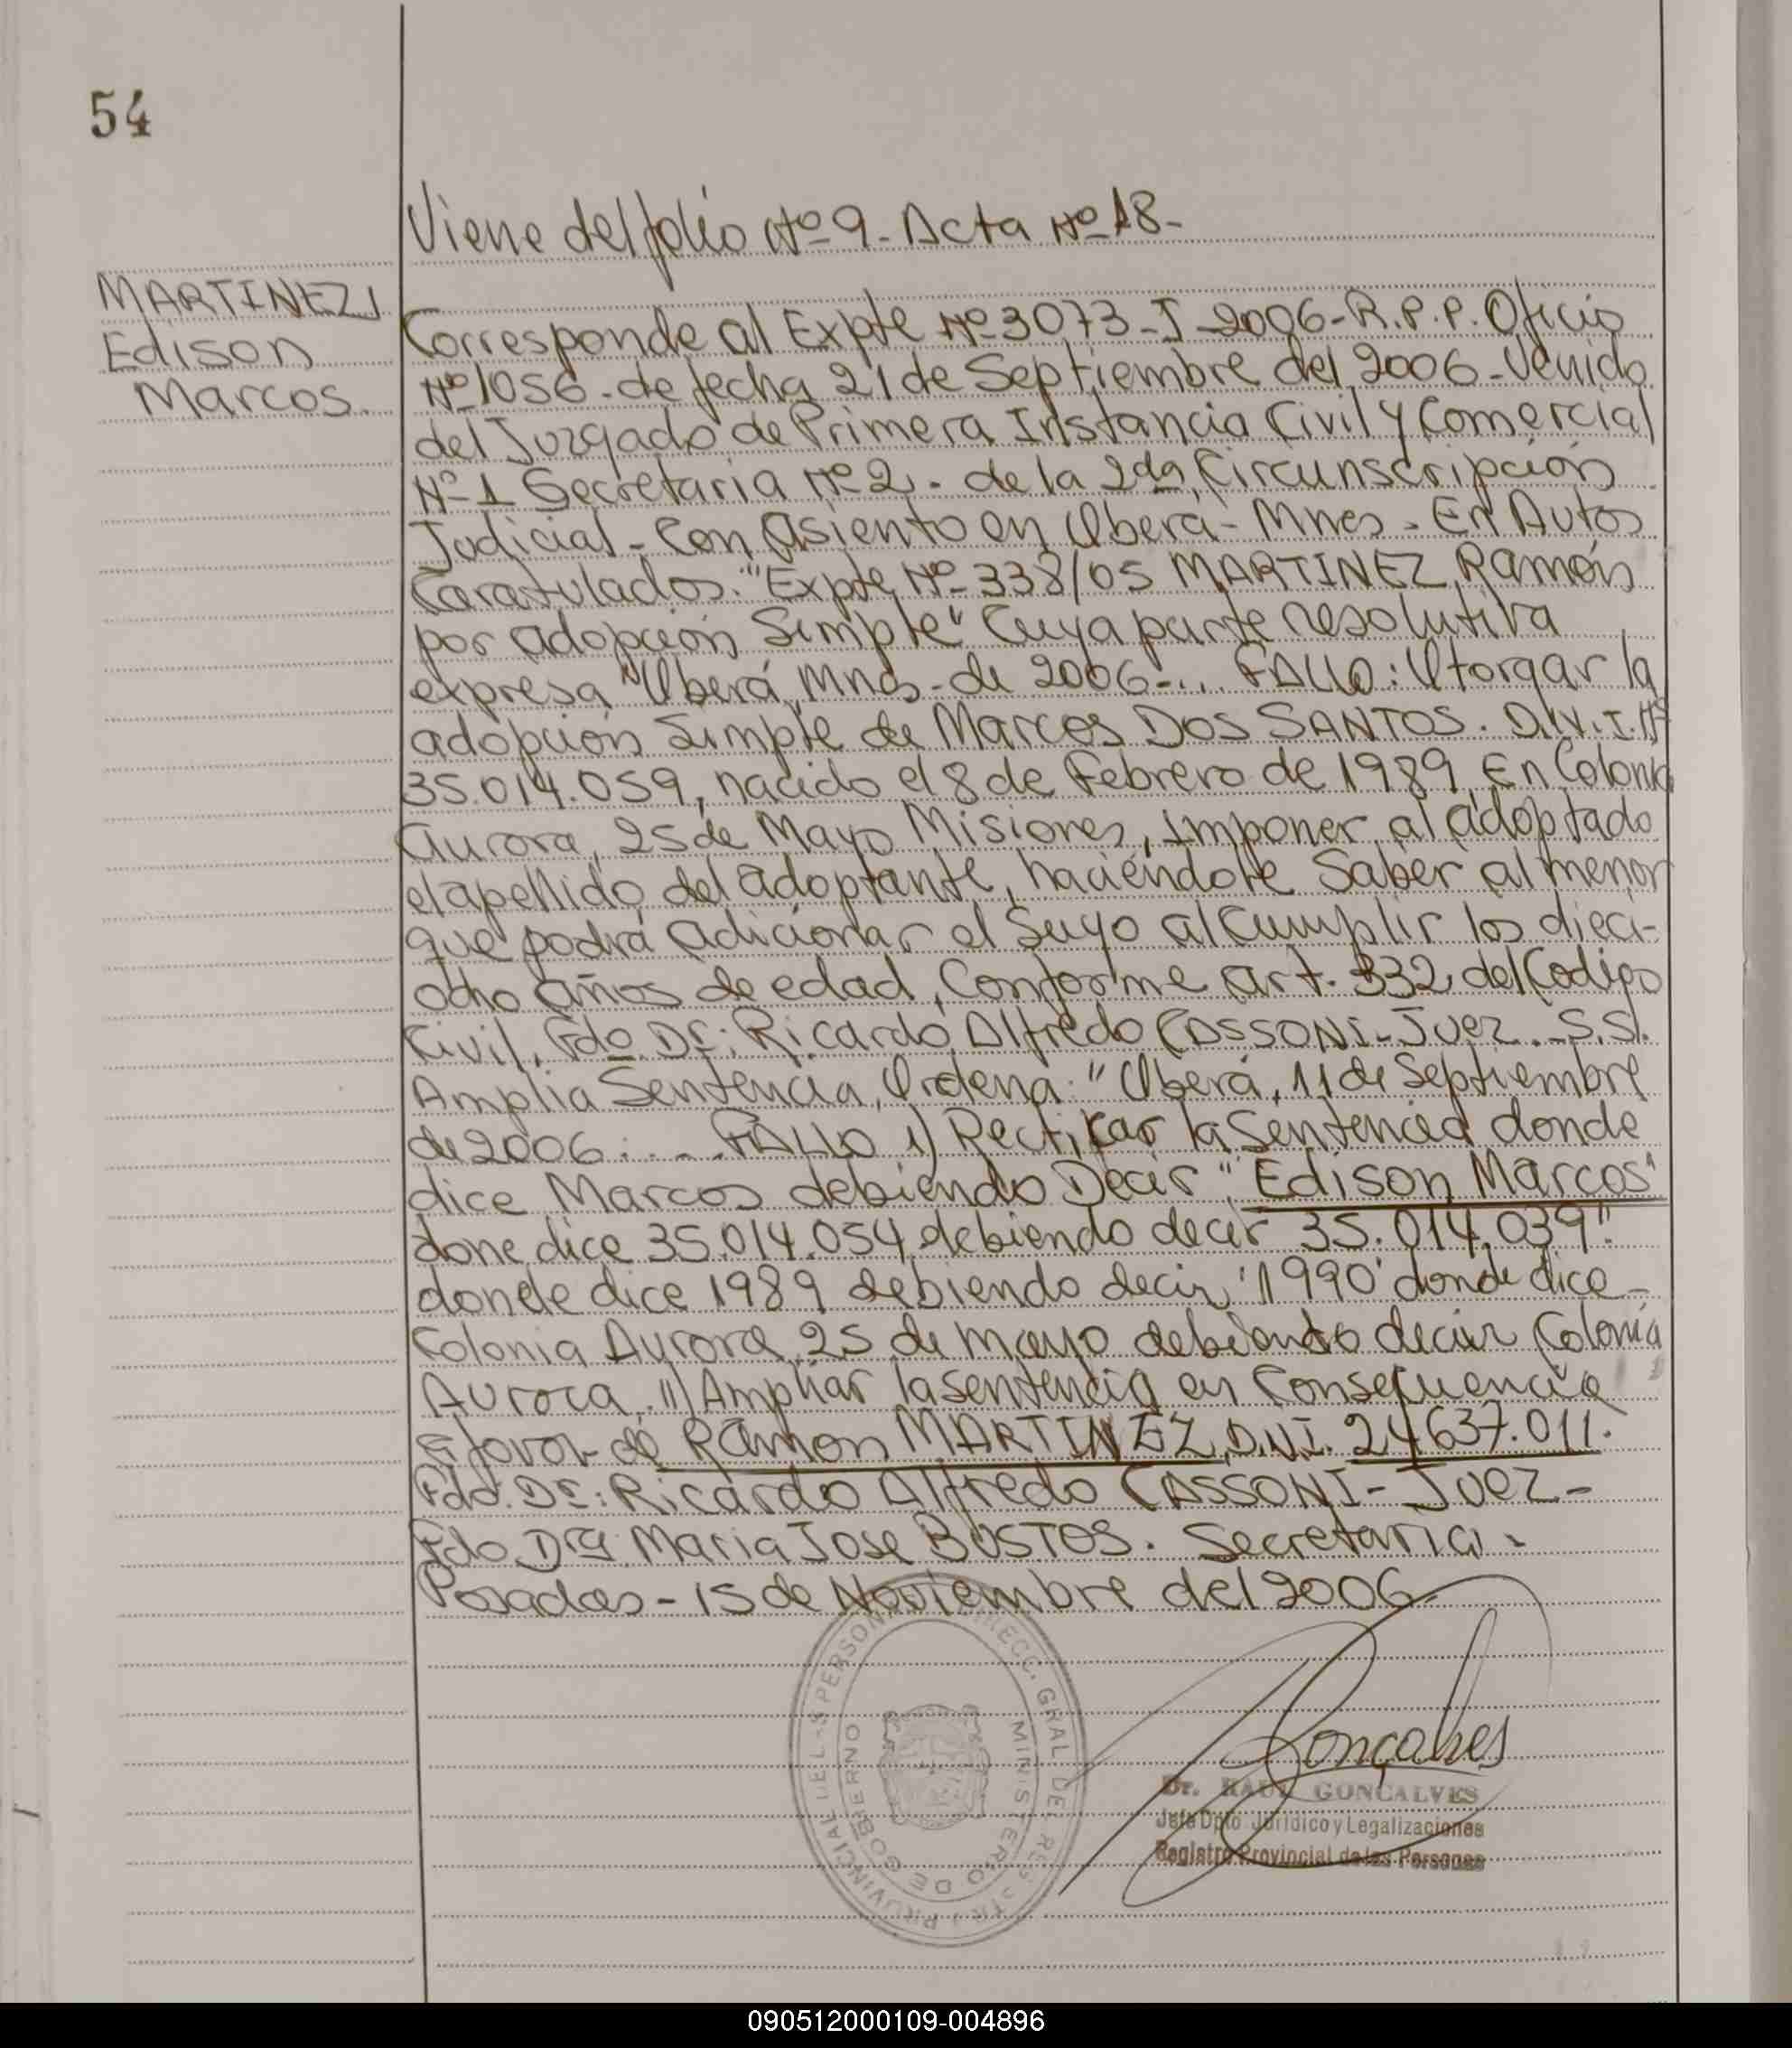 54
Viene del folio Nº 9 - Acta Nº 18 -
MARTINEZ,
Edison
Marcos.
Corresponde al Expte Nº 3073 - J - 2006 - R.P.P. Oficio
Nº 1056 - de fecha 21 de Septiembre del 2006 - Venido
del Juzgado de Primera Instancia Civil y Comercial
Nº 1 Secretaria Nº 2 - de la 2da Circunscripción
Judicial - Con asiento en Oberá - Mnes - En Autos
Caratulados: "Expte Nº 338/05 MARTINEZ, Ramón
por adopción Simple" Cuya parte resolutiva
expresa "Oberá, Mnes - de 2006 -... FALLO: Otorgar la
adopción Simple de Marcos DOS SANTOS. D.N.I. Nº
35.014.059, nacido el 8 de Febrero de 1989, En Colonia
Aurora, 25 de Mayo Misiones, Imponer al adoptado
el apellido del adoptante, haciéndole Saber al menor
que podrá adicionar el Suyo al Cumplir los dieci-
ocho años de edad, Conforme art. 332 del Codigo
Civil. Fdo. Dr.: Ricardo Alfredo CASSONI - Juez. - S.S.
Amplia Sentencia, Ordena: "Oberá, 11 de Septiembre
de 2006: .... FALLO 1) Rectificar la Sentencia donde
dice Marcos debiendo Decir "Edison Marcos"
done dice 35.014.054 debiendo decir 35.014.039"
donde dice 1989 debiendo decir '1990' donde dice -
Colonia Aurora 25 de mayo debiendo decir Colonia
Aurora. II) Ampliar la sentencia en Consecuencia
a favor de Ramon MARTINEZ, D.N.I. 24637.011.
Fdo. Dr.: Ricardo Alfredo CASSONI - Juez -
Fdo Dra Maria Jose BUSTOS. Secretaria.
Posadas - 15 de Noviembre del 2006
DIRECC. GRAL DEL REGISTRO PROVINCIAL DE LAS PERSONAS
MINISTERIO DE GOBIERNO
Gonçalves
Dr. RAUL GONCALVES
Jefe Dpto. Jurídico y Legalizaciones
Registro Provincial de las Personas
090512000109-004896